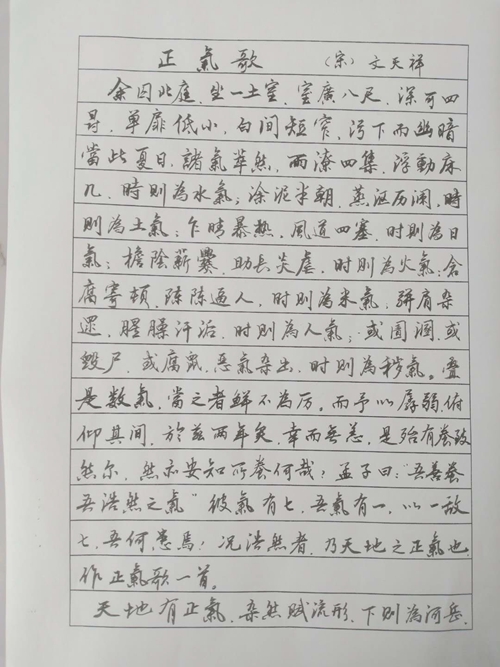 正氣歌 （宋）文天祥
余囚北庭，坐一土室，室廣八尺，深可四
尋，單扉低小，白间短窄，污下而幽暗
當此夏日，諸氣萃然，雨潦四集，浮動床
几，時則為水氣；涂泥半朝，蒸沤历澜，時
則為土氣；乍晴暴热，風道四塞，时則為日
氣；檐陰薪爨，助長炎虐，时則為火氣；倉
腐寄頓，陈陈逼人，时則為米氣，骈肩杂
遝，腥臊汗垢，时則為人氣；或圊溷，或
毀尸，或腐鼠，恶氣杂出，时則為秽氣。叠
是数氣，當之者鲜不為厉。而予以孱弱，俯
仰其间，於兹两年矣，幸而無恙，是殆有養致
然尔，然亦安知所養何哉？孟子曰："吾善養
吾浩然之氣"彼氣有七，吾氣有一，以一敌
七，吾何患焉！况浩然者，乃天地之正氣也，
作正氣歌一首。
天地有正氣，杂然赋流形，下則為河岳，